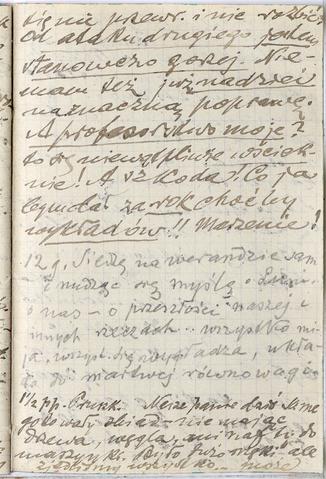 się nie przewr. i nie rozbić.
Od ataku drugiego jestem
stanowczo gorzej. Nie-
mam też już nadziei
na znaczną poprawę.
A profesorstwo moje?
to się niewątpliwie wściek-
nie! A szkoda! Co ja
bym dał za rok choćby
wykładów!! Marzenie!
12 g. Siedzę na werandzie sam
i nudząc się myślę o
o nas – o przeszłości naszej i
innych rzeczach.. wszystko mi-
ja, wszyst. się wygładza, ukła-
da do martwej równowagi.
1½ pp. Prusk. Nasze panie dziś same
gotowały obiad – nie mając
drzewa, węgla, ani nafty do
maszynki. Było dużo ale
zjedliśmy wszystko – może